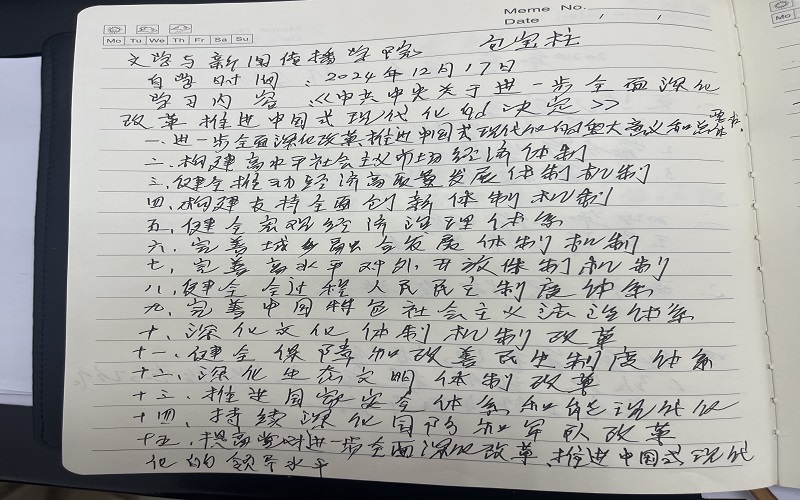 Meme No.
Date / /
Mo Tu We Th Fr Sa Su
文学与新闻传播学院 包宝柱
自学时间：2024年12月17日
学习内容：《中共中央关于进一步全面深化
改革 推进中国式现代化的决定》
一、进一步全面深化改革、推进中国式现代化的重大意义和总体要求
二、构建高水平社会主义市场经济体制
三、健全推动经济高质量发展体制机制
四、构建支持全面创新体制机制
五、健全宏观经济治理体系
六、完善城乡融合发展体制机制
七、完善高水平对外开放体制机制
八、健全全过程人民民主制度体系
九、完善中国特色社会主义法治体系
十、深化文化体制机制改革
十一、健全保障和改善民生制度体系
十二、深化生态文明体制改革
十三、推进国家安全体系和能力现代化
十四、持续深化国防和军队改革
十五、提高党对进一步全面深化改革、推进中国式现代
化的领导水平